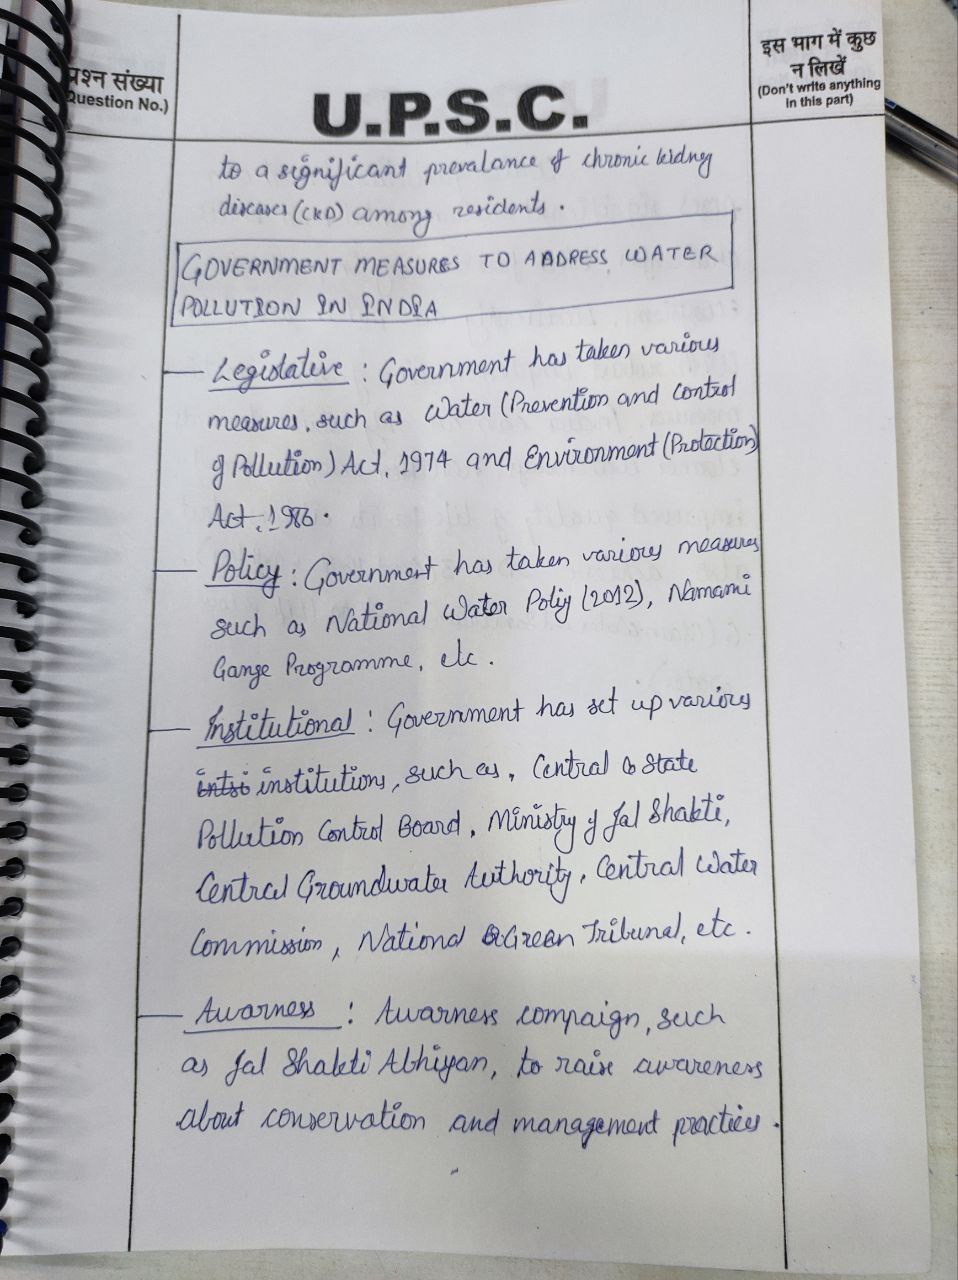 प्रश्न संख्या
(Question No.)
U.P.S.C.
इस भाग में कुछ
न लिखें
(Don't write anything
in this part)
to a significant prevalance of chronic kidney
diseases (CKD) among residents.
GOVERNMENT MEASURES TO ADDRESS WATER
POLLUTION IN INDIA
— Legislative : Government has taken various
measures, such as Water (Prevention and Control
of Pollution) Act, 1974 and Environment (Protection)
Act, 1986.
— Policy : Government has taken various measures
such as National Water Policy (2012), Namami
Gange Programme, etc.
— Institutional : Government has set up various
intsi institutions, such as, Central & State
Pollution Control Board, Ministry of Jal Shakti,
Central Groundwater Authority, Central Water
Commission, National Green Tribunal, etc.
— Awarness : Awarness compaign, such
as Jal Shakti Abhiyan, to raise awareness
about conservation and management practices.